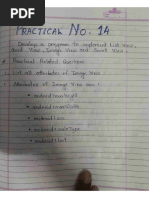 PRACTICAL No. 14
Develop a program to implement List View,
Grid View, Image View and Scroll View :
Practical Related Questions
List all attributes of Image View
Attributes of Image View are :
• android : maxHeight
• android : maxWidth
• android : src
• android : scaleType
• android : tint